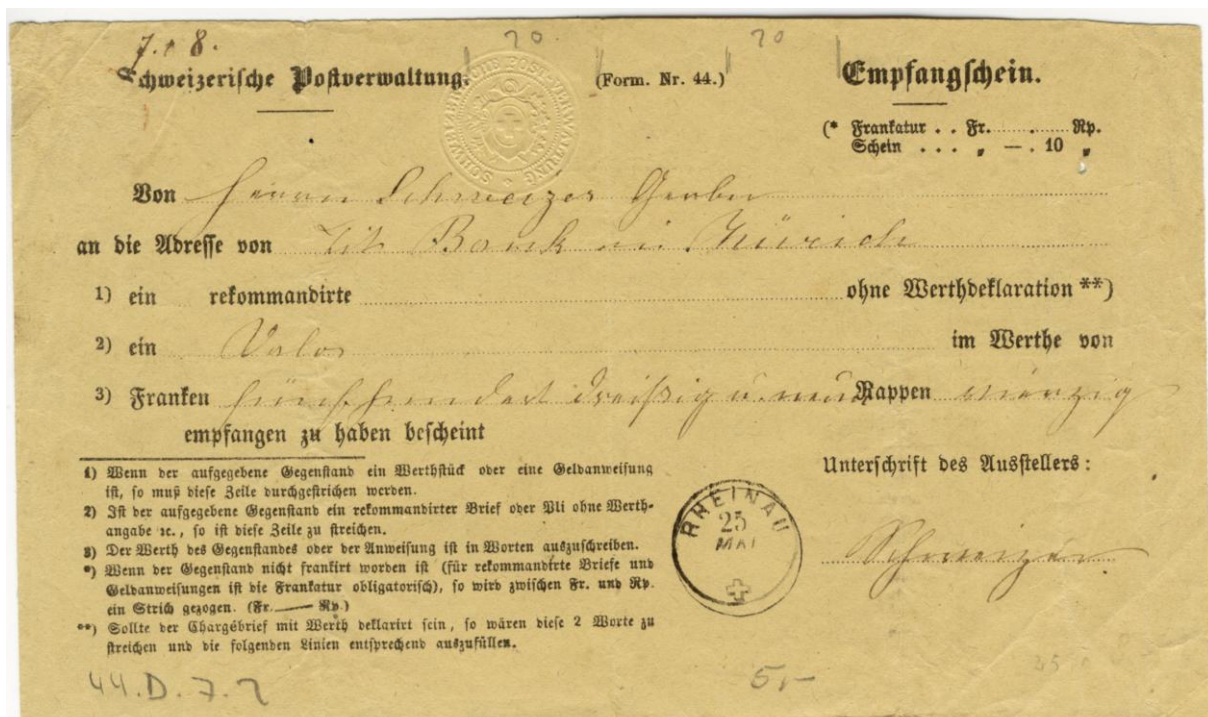 7. 8.
20.
20
Schweizerische Postverwaltung.
(Form. Nr. 44.)
Empfangschein.
SCHWEIZERISCHE POST-VERWALTUNG
(* Frankatur . . Fr. ........ Rp.
Schein . . . „ — . 10 „
Von Herrn Schweizer Gerber
an die Adresse von Tit Bank in Zürich
1) ein rekommandirte ohne Werthdeklaration **)
2) ein Valor im Werthe von
3) Franken fünfhundert dreißig u. neun Rappen vierzig
empfangen zu haben bescheint
1) Wenn der aufgegebene Gegenstand ein Werthstück oder eine Geldanweisung
ist, so muß diese Zeile durchgestrichen werden.
2) Ist der aufgegebene Gegenstand ein rekommandirter Brief oder Pli ohne Werth-
angabe ꝛc., so ist diese Zeile zu streichen.
3) Der Werth des Gegenstandes oder der Anweisung ist in Worten auszuschreiben.
*) Wenn der Gegenstand nicht frankirt worden ist (für rekommandirte Briefe und
Geldanweisungen ist die Frankatur obligatorisch), so wird zwischen Fr. und Rp.
ein Strich gezogen. (Fr. —— Rp.)
**) Sollte der Chargébrief mit Werth deklarirt sein, so wären diese 2 Worte zu
streichen und die folgenden Linien entsprechend auszufüllen.
Unterschrift des Ausstellers:
RHEINAU
25
MAI
Schweizer
44.D.7.2
5,-